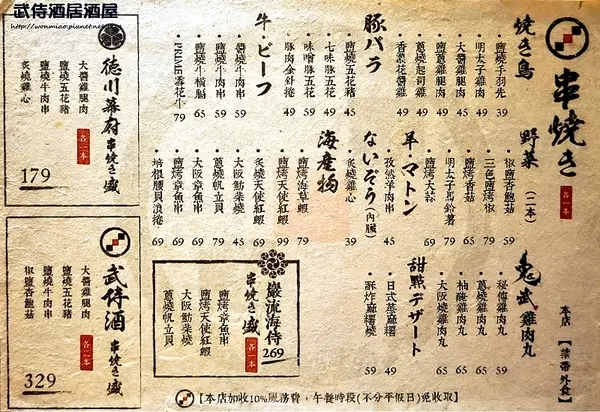 武侍酒居酒屋
http://wonmiao.pixnet.net/
串燒き
各一本
本店【禁帶外食】
焼き鳥
鹽燒手羽先 39
明太子雞肉 49
大醬雞腿肉 49
鹽燒雞腿肉 49
蔥燒起司雞 49
香濃花醬雞 49
豚バラ
鹽燒五花豬 45
七味豚五花 49
味噌豚五花 59
豚肉金針捲 49
牛ビーフ
醬燒牛肉串 59
鹽燒牛肉串 59
鹽燒牛橫膈 65
PRIME雪花牛 79
野菜(二本)
椒鹽杏鮑菇 59
三色鹽烤椒 79
鹽烤香菇 65
明太子馬鈴薯 79
鹽烤大蒜 69
羊マトン
孜然羊肉串 45
ないぞう(內臟)
炙燒雞心 39
海產物
鹽烤海草蝦 79
鹽烤天使紅蝦 99
炙燒天使紅蝦 99
大阪魴柴燒 45
蔥燒帆立貝 79
大阪章魚串 69
鹽烤章魚串 69
培根腰貝浪捲 69
鬼武雞肉丸
秘傳雞肉丸 59
蔥燒雞肉丸 65
柚醃雞肉丸 65
大阪燒雞肉丸 65
甜點デザート
日式蕨麻糬 49
酥炸蕨麻糬 59
德川幕府
串燒き盛
各一本
大醬雞腿肉
鹽燒五花豬
鹽燒牛肉串
炙燒雞心
179
武侍酒
串燒き盛
各二本
大醬雞腿肉
鹽燒五花豬
鹽燒牛肉串
椒鹽杏鮑菇
329
巖流海侍
串燒き盛
各一本
269
鹽烤章魚串
鹽烤天使紅蝦
大阪魴柴燒
蔥燒帆立貝
【本店加收10%服務費,午餐時段(不分平假日)免收取】